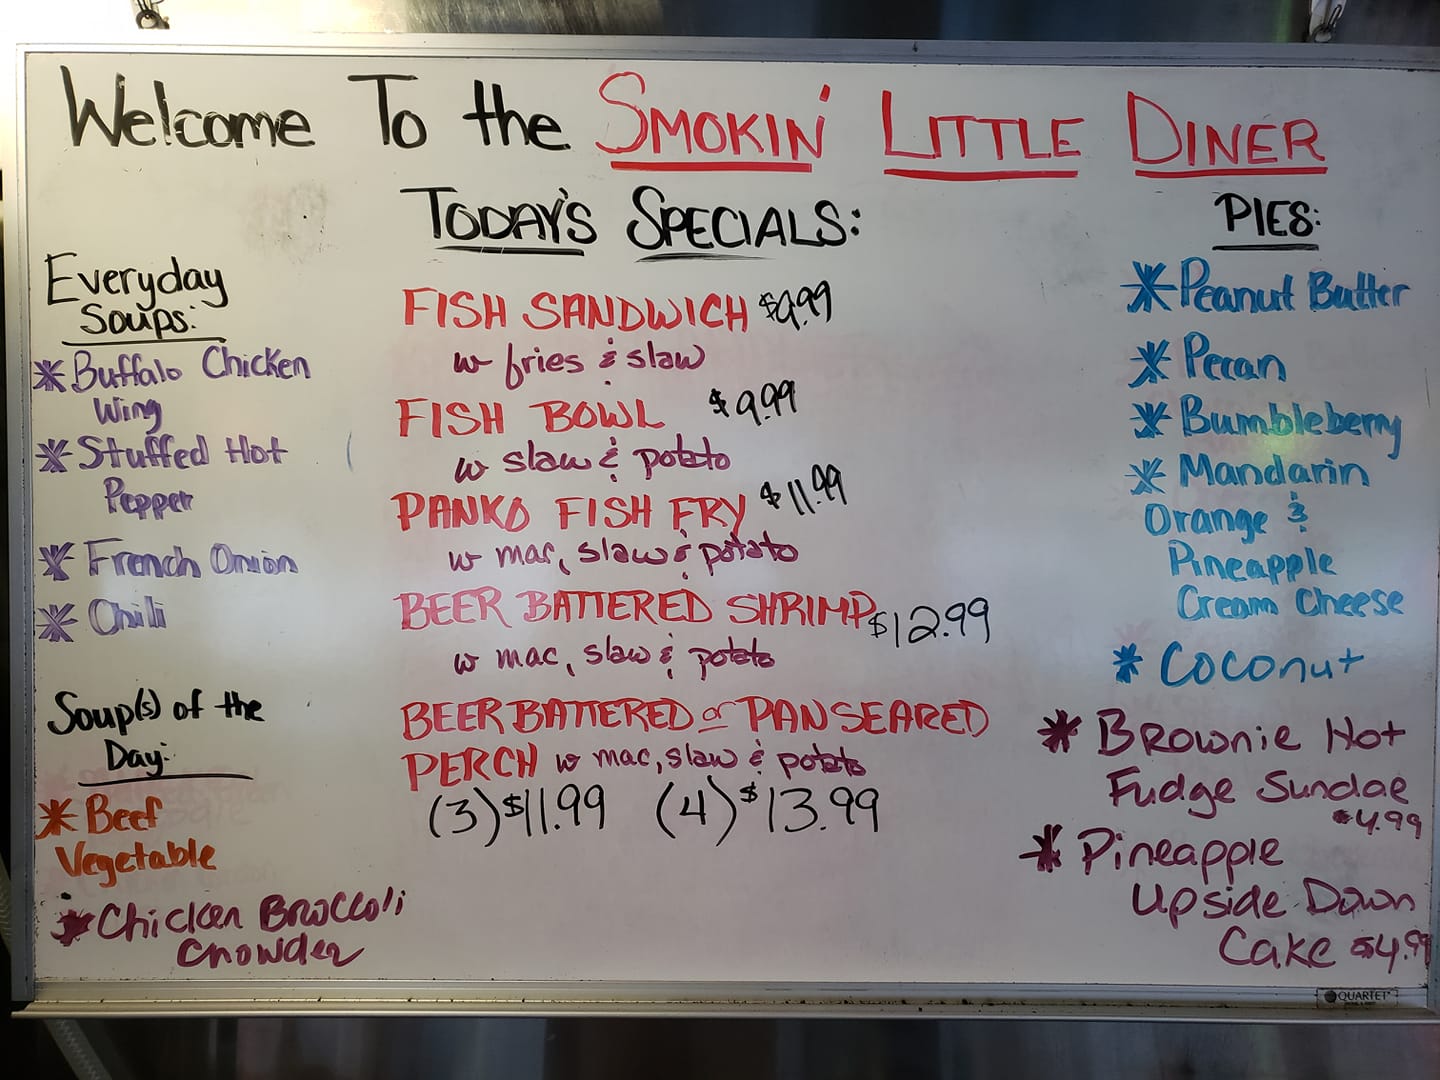 Welcome To the SMOKIN' LITTLE DINER
TODAY'S SPECIALS:
Everyday
Soups:
* Buffalo Chicken
Wing
* Stuffed Hot
Pepper
* French Onion
* Chili
Soup(s) of the
Day:
* Beef
Vegetable
* Chicken Broccoli
Chowder
FISH SANDWICH $9.99
w fries & slaw
FISH BOWL $9.99
w slaw & potato
PANKO FISH FRY $11.99
w mac, slaw & potato
BEER BATTERED SHRIMP $12.99
w mac, slaw & potato
BEER BATTERED or PAN SEARED
PERCH w mac, slaw & potato
(3) $11.99 (4) $13.99
PIES:
* Peanut Butter
* Pecan
* Bumbleberry
* Mandarin
Orange &
Pineapple
Cream Cheese
* Coconut
* Brownie Hot
Fudge Sundae
$4.99
* Pineapple
Upside Down
Cake $4.99
QUARTET